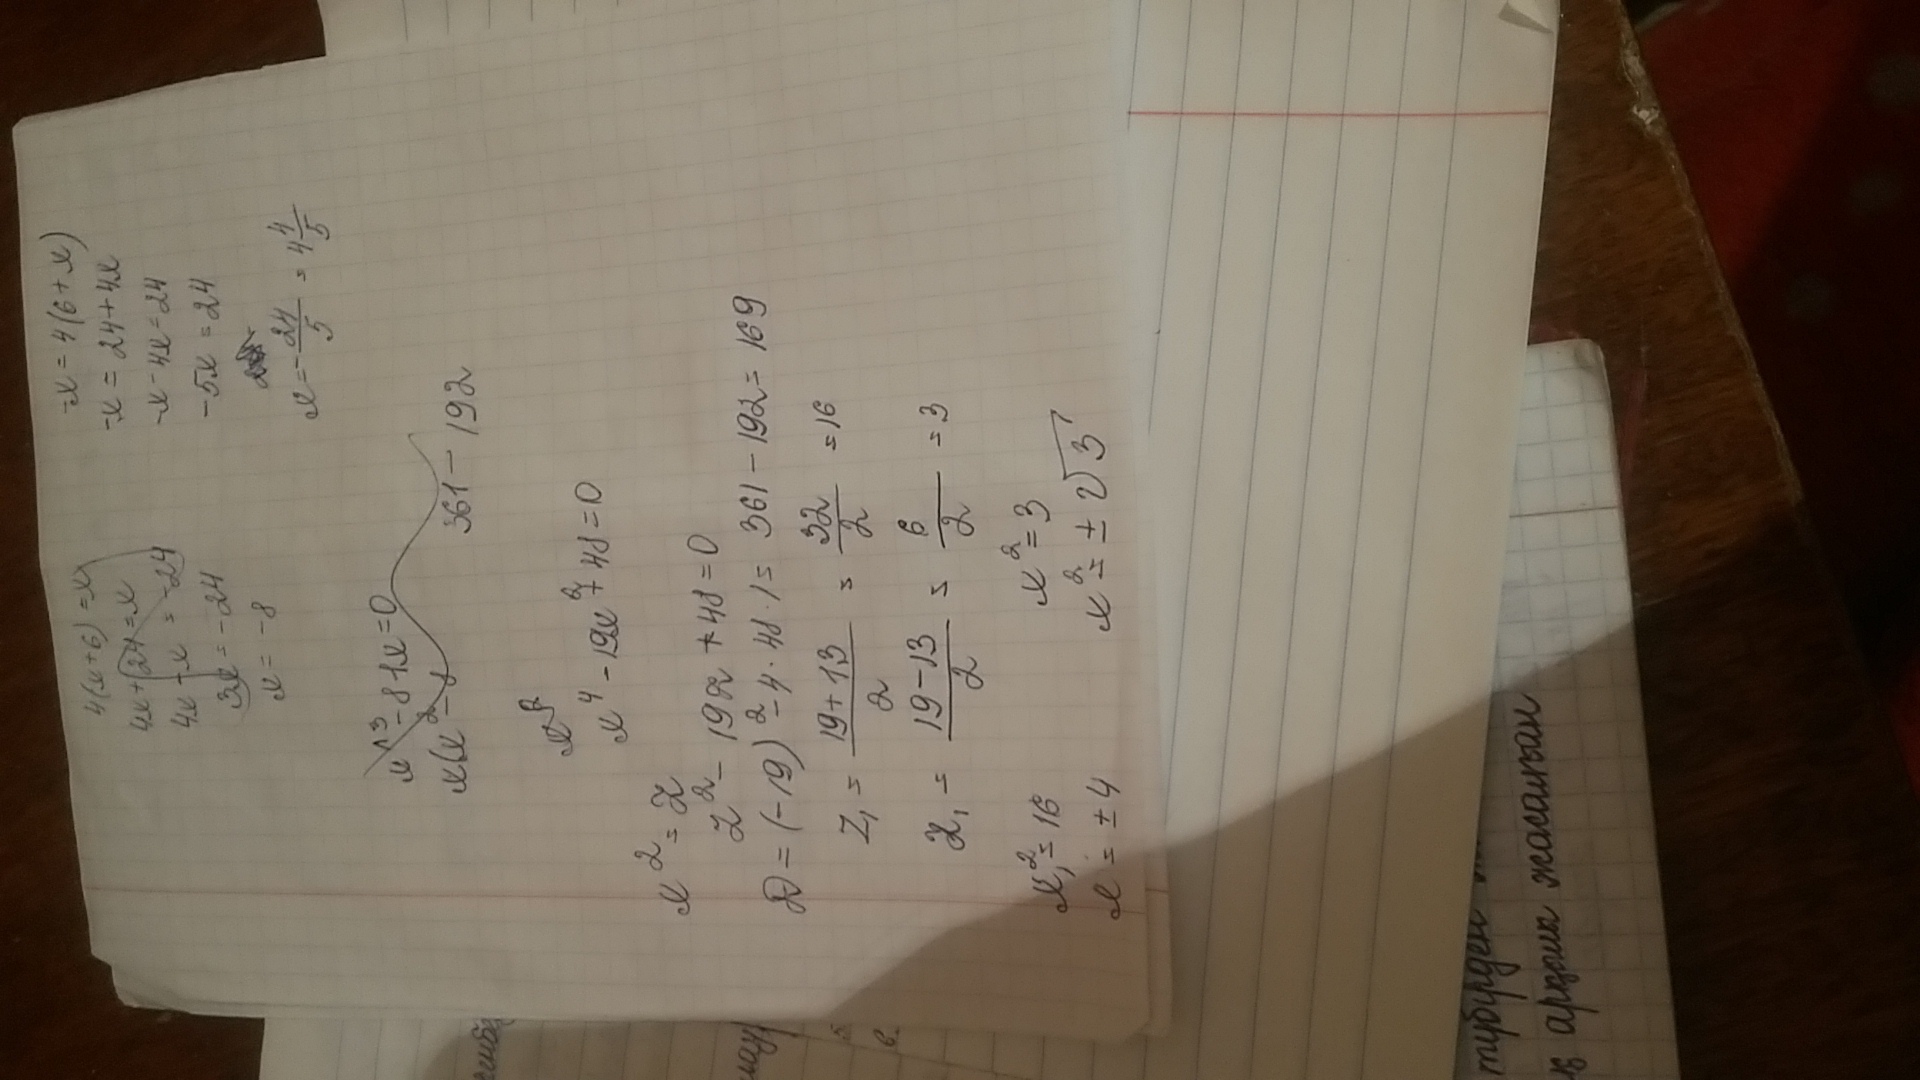 4(x+6)=x
4x+24=x
4x-x=-24
3x=-24
x=-8
-x=4(6+x)
-x=24+4x
-x-4x=24
-5x=24
x=-24/5=4 4/5
x^3-81x=0
x(x²-8
361-192
x²
x⁴-19x²+48=0
x²=z
z²-19z+48=0
D=(-19)²-4·48·1=361-192=169
z₁=19+13/2=32/2=16
z₁=19-13/2=6/2=3
x₁²=16
x=±4
x²=3
x²=±√3
түбірден
арқылы жасалған